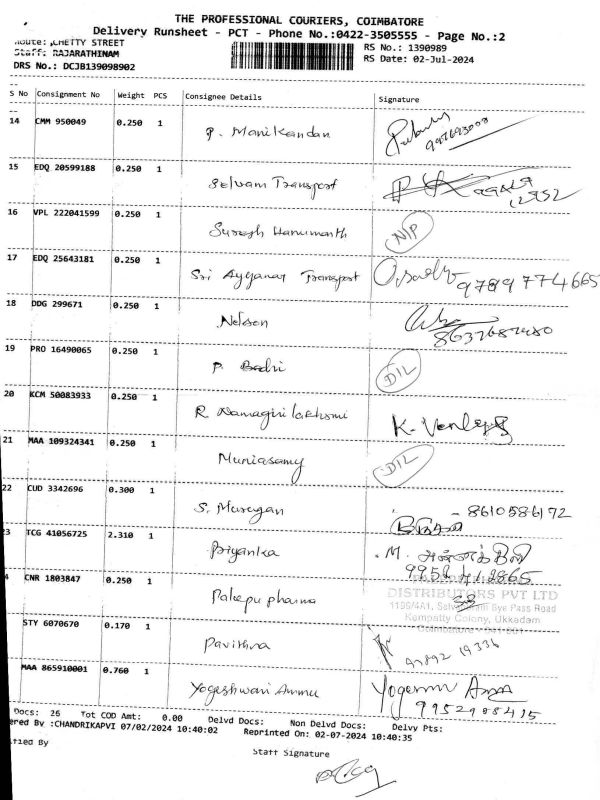 THE PROFESSIONAL COURIERS, COIMBATORE
Delivery Runsheet - PCT - Phone No.:0422-3505555 - Page No.:2
Route: CHETTY STREET
Staff: RAJARATHINAM
RS No.: 1390989
DRS No.: DCJB139098902
RS Date: 02-Jul-2024
S No Consignment No Weight PCS Consignee Details Signature
14 CMM 950049 0.250 1 P. Manikandan
15 EDQ 20599188 0.250 1 Selvam Transport
16 VPL 222041599 0.250 1 Suresh Hanumanth N/P
17 EDQ 25643181 0.250 1 Sri Ayyanar Transport 9789774665
18 DDG 299671 0.250 1 Nelson
19 PRO 16490065 0.250 1 P. Badri D/L
20 KCM 50083933 0.250 1 R. Namagiri lakshmi K.
21 MAA 109324341 0.250 1 Muniasamy D/L
22 CUD 3342696 0.300 1 S. Murugan - 8610586172
23 TCG 41056725 2.310 1 Priyanka M.
CNR 1803847 0.250 1 Palepu pharma
DISTRIBUTORS PVT LTD
Bye Pass Road
Kempatty Colony, Ukkadam
STY 6070670 0.170 1 Pavithra
97892 19336
MAA 865910001 0.760 1 Yogeshwari Ammu
9952988415
Docs: 26 Tot COD Amt: 0.00 Delvd Docs: Non Delvd Docs: Delvy Pts:
ered By :CHANDRIKAPVI 07/02/2024 10:40:02 Reprinted On: 02-07-2024 10:40:35
ified By
Staff Signature